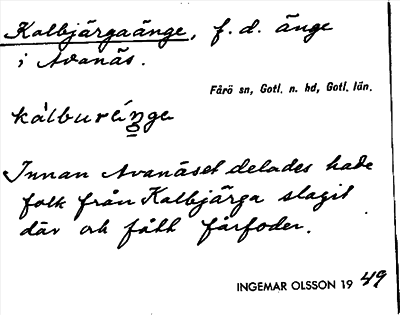 Kalbjärgaänge, f.d. änge
i Avanäs.
Fårö sn, Gotl. n. hd, Gotl. län.
Innan Avanäset delades hade
folk från Kalbjärga slagit
där och fått fårfoder.
INGEMAR OLSSON 19 49